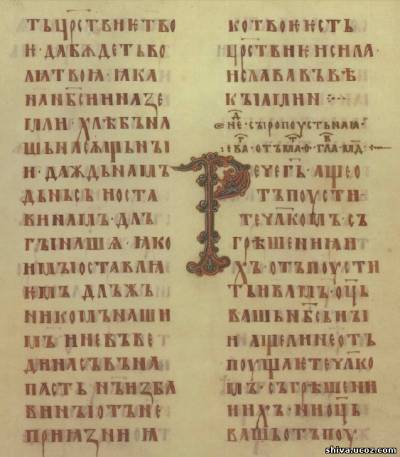 ТЬ ЦР҃СТВИѤ ТВО
Ѥ · ДА БѪДЕТЬ ВО
ЛꙖ ТВОꙖ · ꙖКО
НА НБ҃СИ И НА ЗЕ
МЛИ · ХЛѢБЪ НА
ШЬ НАСѪЩЬНꙐ
И · ДАЖДЬ НАМЪ
ДЬНЬСЬ · И ОСТА
ВИ НАМЪ ДЛЪ
ГꙐ НАШѦ · ꙖКО
И МꙐ ОСТАВЛꙖ
ѤМЪ ДЛЪЖЬ
НИКОМЪ НАШИ
МЪ · И НЕ ВЪВЕ
ДИ НАСЪ ВЪ НА
ПАСТЬ · НЪ ИЗБА
ВИ НꙐ ОТЪ НЕ
ПРИꙖЗНИ · Ꙗ
КО ТВОѤ ѤСТЬ
ЦР҃СТВИѤ И СИЛА
И СЛАВА ВЪ ВѢ
КꙐ АМИН
НЕⷣ · СꙐРОПОУСТЬНАꙖ
ЕВА · ОТЪ
РЕЧЕ Г҃Ь · АЩЕ О
ТЪПОУСТИ
ТЕ ЧЛ҃КОМЪ · СЪ
ГРѢШЕНИꙖ И
ХЪ · ОТЪПОУСТИ
ТЬ И ВАМЪ · ОЦ҃Ь
ВАШЬ НБ҃СЬНꙐИ
И АЩЕ ЛИ НЕ ОТЪ
ПОУЩАѤТЕ ЧЛ҃КО
МЪ · СЪГРѢШЕНИ
И ИХЪ · НИ ОЦ҃Ь
ВАШЬ ОТЪПОУ
shiva.ucoz.com